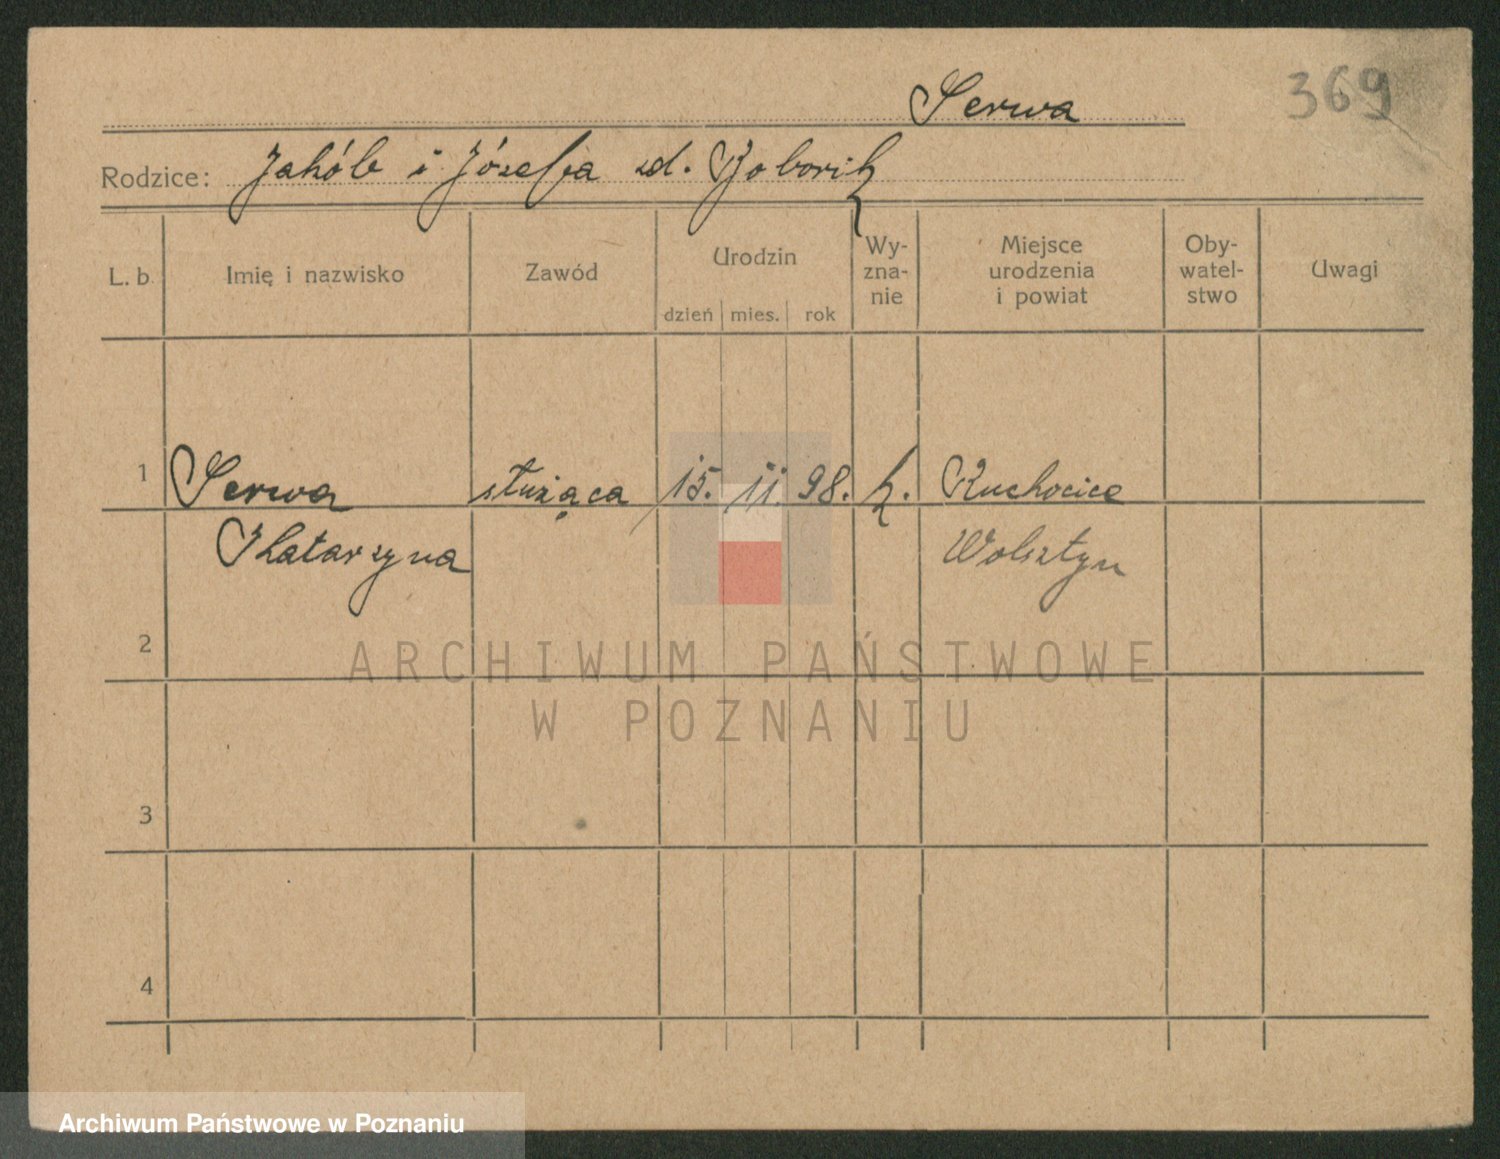 369
Serwa
Rodzice: Jakób i Józefa zd.
L. b. Imię i nazwisko Zawód Urodzin Wy-zna-nie Miejsce urodzenia i powiat Oby-watel-stwo Uwagi
dzień mies. rok
1 Serwa służąca 15. 11. 98. k. Ruchocice
Katarzyna Wolsztyn
2
ARCHIWUM PAŃSTWOWE
W POZNANIU
3
4
Archiwum Państwowe w Poznaniu